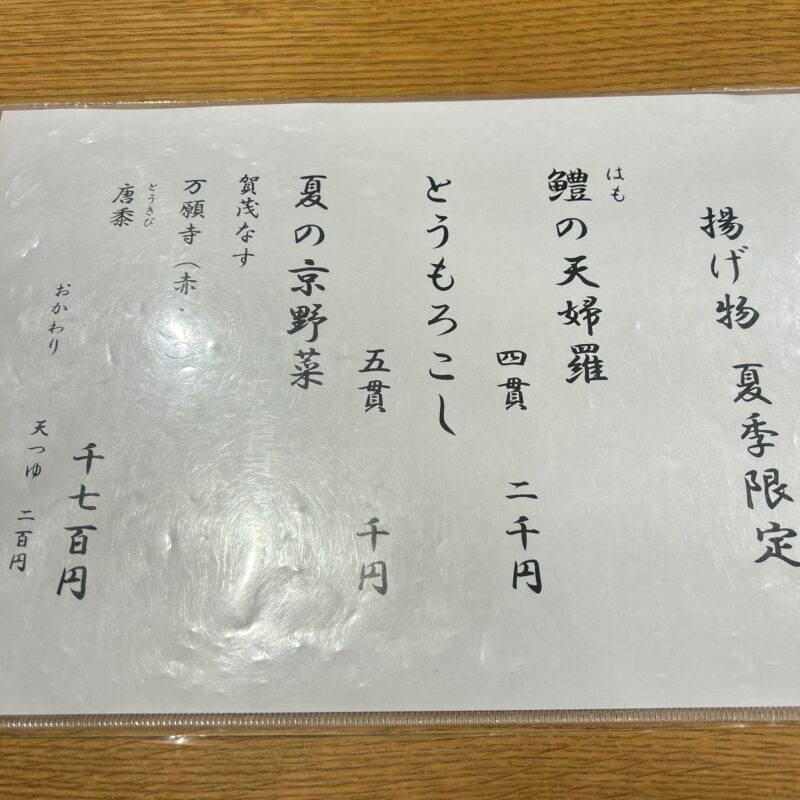 揚げ物 夏季限定
はも
鱧の天婦羅
四貫 二千円
とうもろこし
五貫 千円
夏の京野菜
賀茂なす
万願寺（赤・
とうきび
唐黍
千七百円
おかわり
天つゆ 二百円